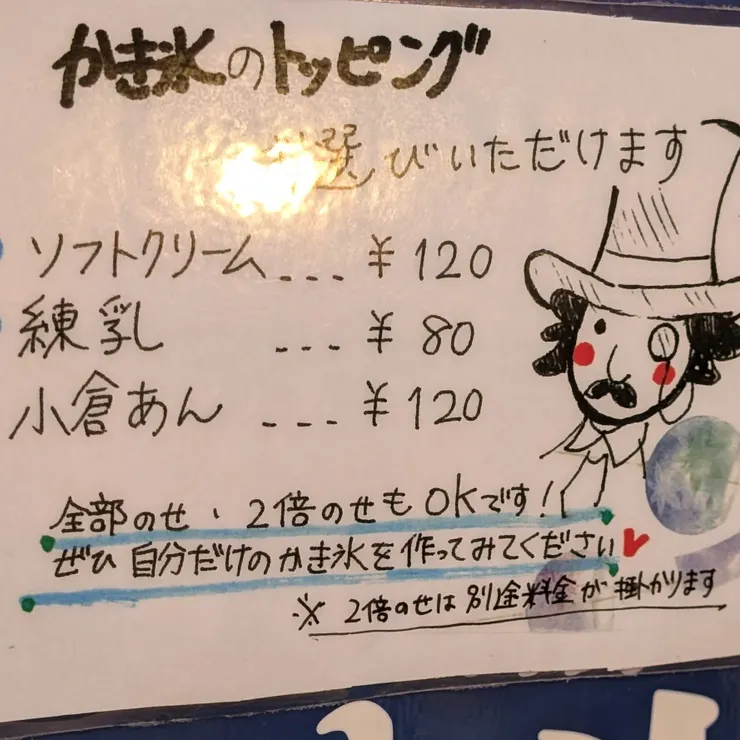 かき氷のトッピング
選びいただけます
ソフトクリーム...¥120
練乳...¥80
小倉あん...¥120
全部のせ、2倍のせもOKです!
ぜひ自分だけのかき氷を作ってみてください♥
※2倍のせは別途料金が掛かります